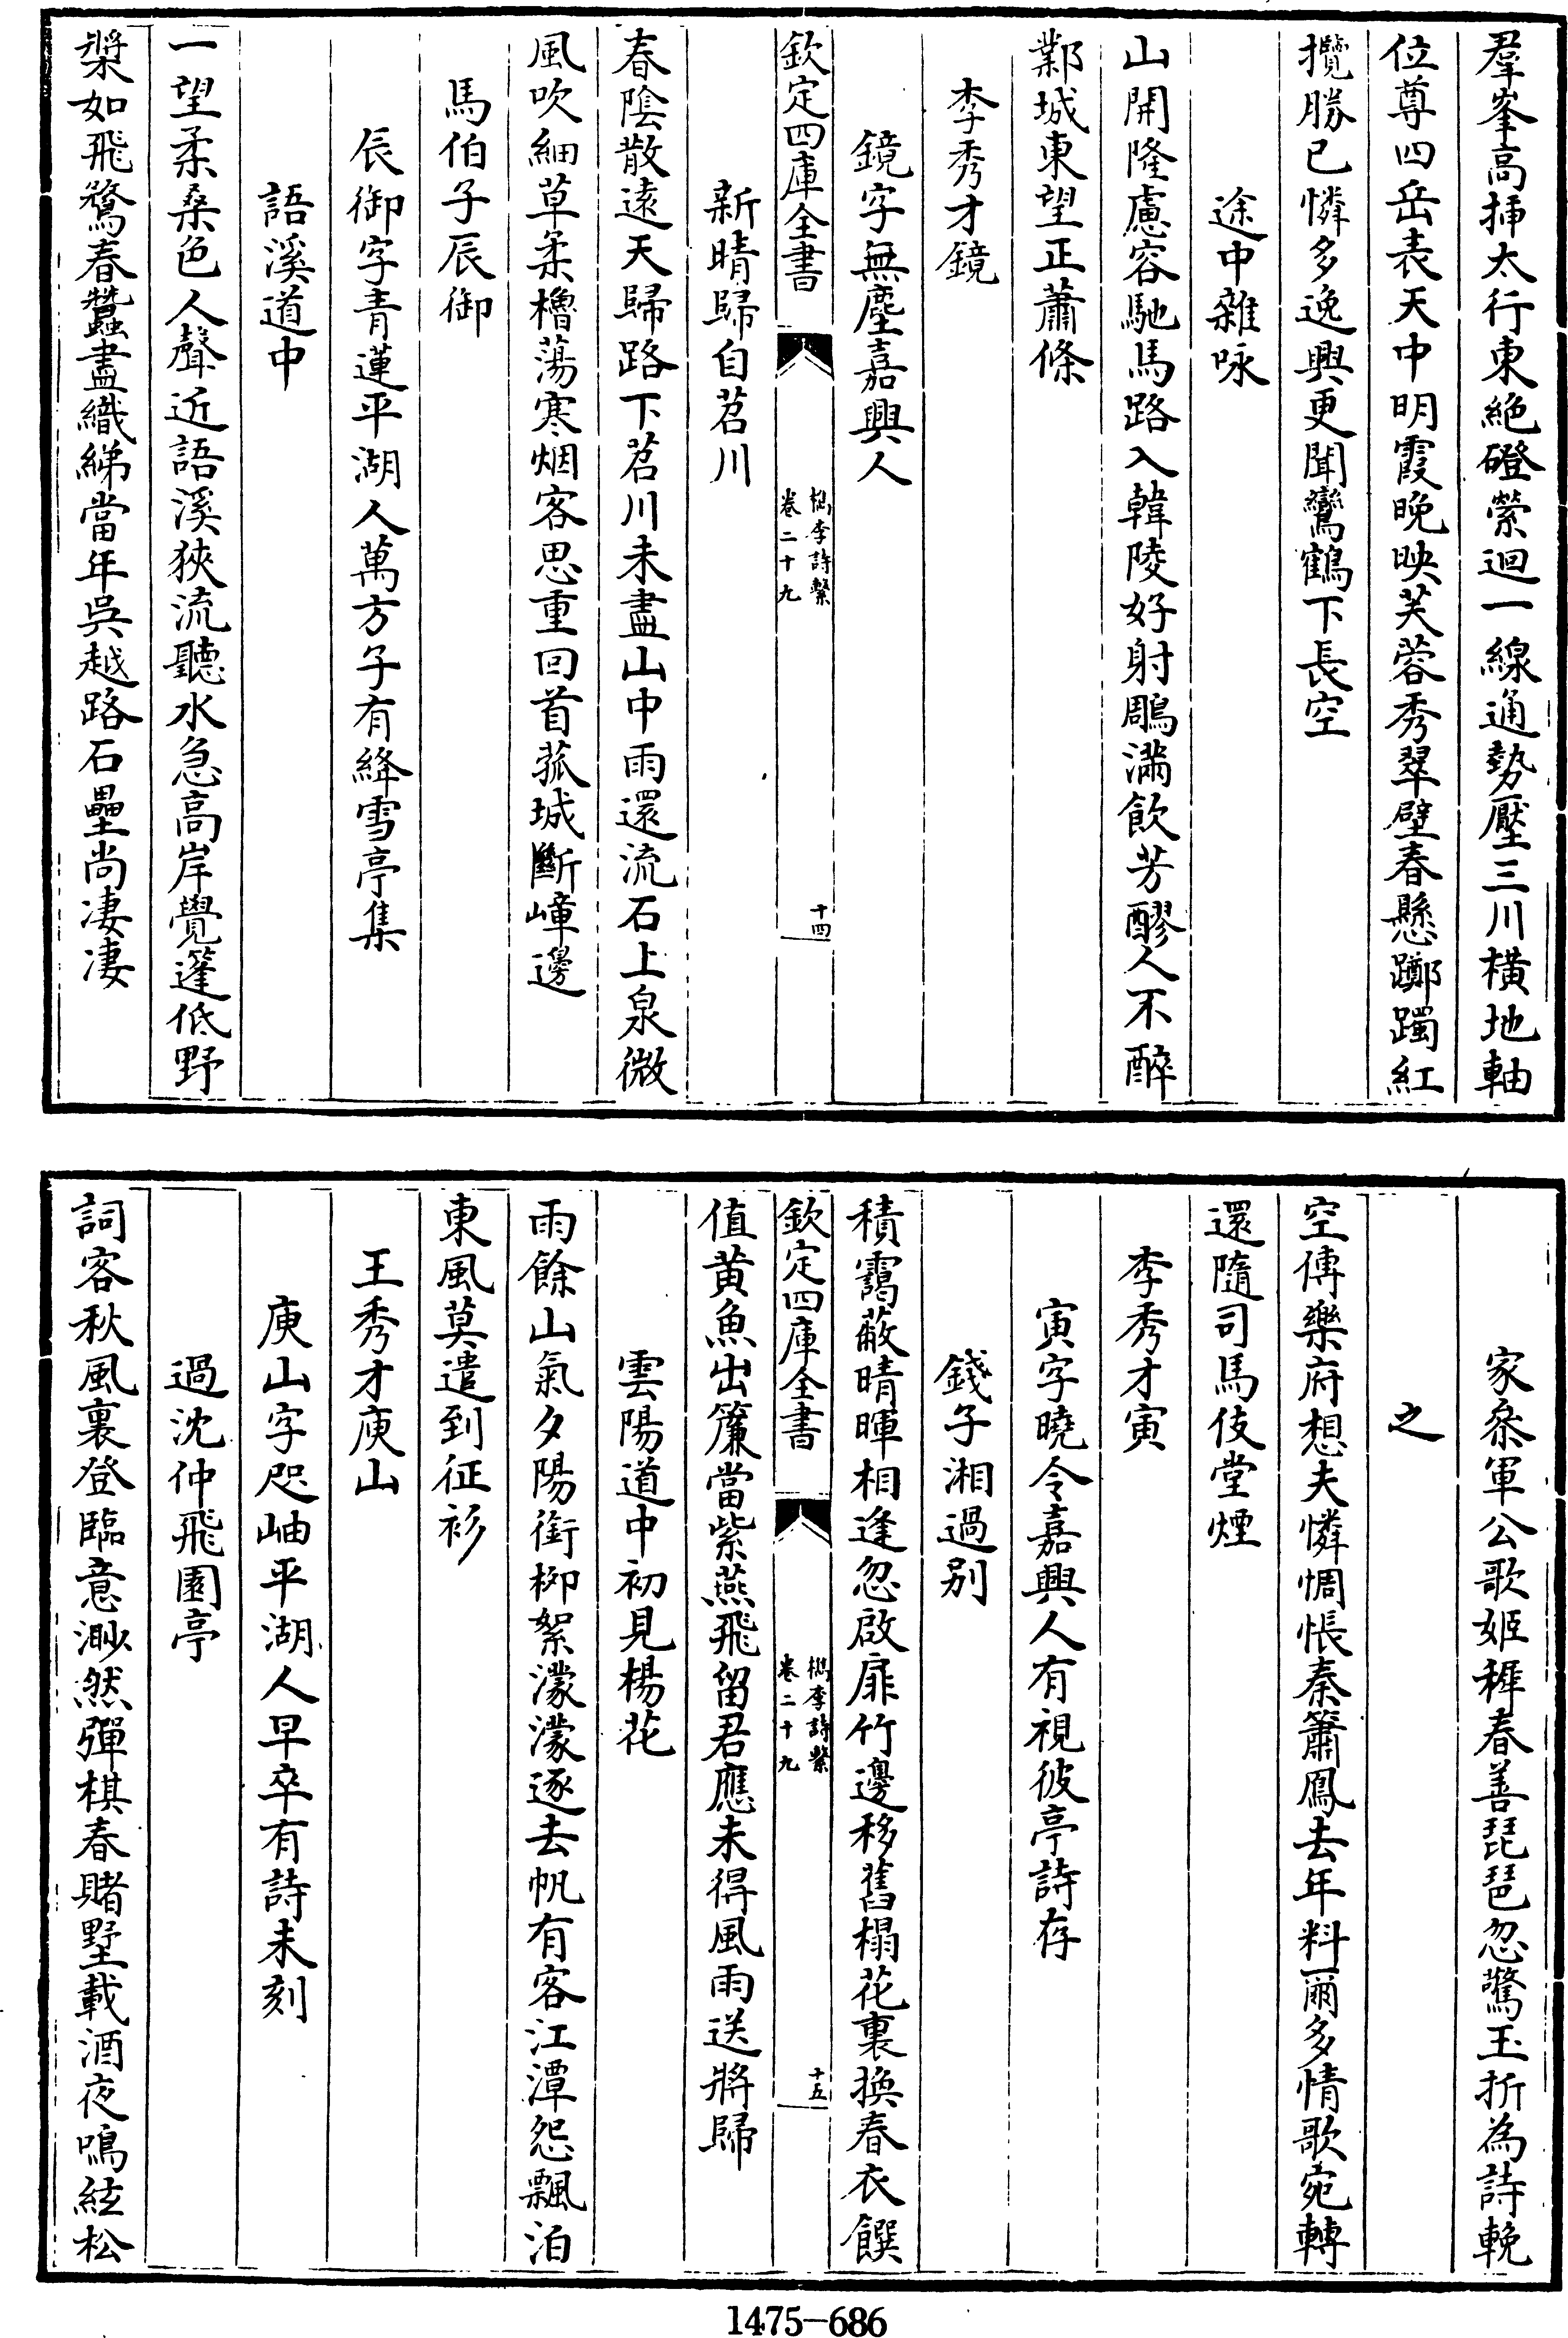 羣峯高揷太行東絶磴縈迴一線通勢壓三川横地軸
位尊四岳表天中明霞晚映芙蓉秀翠壁春懸躑躅紅
攬勝已憐多逸興更聞鸞鶴下長空
途中雜咏
山開隆慮容馳馬路入韓陵好射鵰滿飲芳醪人不醉
鄴城東望正蕭條
李秀才鏡
鏡字無塵嘉興人
欽定四庫全書
檇李詩繫
卷二十九
十四
新晴歸自苕川
春陰散遠天歸路下苕川未盡山中雨還流石上泉微
風吹細草柔櫓蕩寒烟客思重回首菰城斷嶂邊
馬伯子辰御
辰御字青蓮平湖人萬方子有絳雪亭集
語溪道中
一望柔桑色人聲近語溪狹流聽水急高岸覺篷低野
槳如飛鶩春蠶盡織綈當年吳越路石壘尚凄凄
家叅軍公歌姬穉春善琵琶忽驚玉折為詩輓
之
空傳樂府想夫憐惆悵秦簫鳳去年料爾多情歌宛轉
還隨司馬伎堂煙
李秀才寅
寅字曉令嘉興人有視彼亭詩存
錢子湘過别
積靄蔽晴暉相逢忽啟扉竹邊移舊榻花裏換春衣饌
欽定四庫全書
檇李詩繫
卷二十九
十五
值黄魚出簾當紫燕飛留君應未得風雨送將歸
雲陽道中初見楊花
雨餘山氣夕陽銜栁絮濛濛逐去帆有客江潭怨飄泊
東風莫遣到征衫
王秀才庾山
庾山字咫岫平湖人早卒有詩未刻
過沈仲飛園亭
詞客秋風裏登臨意渺然彈棋春賭墅載酒夜鳴絃松
1475-686